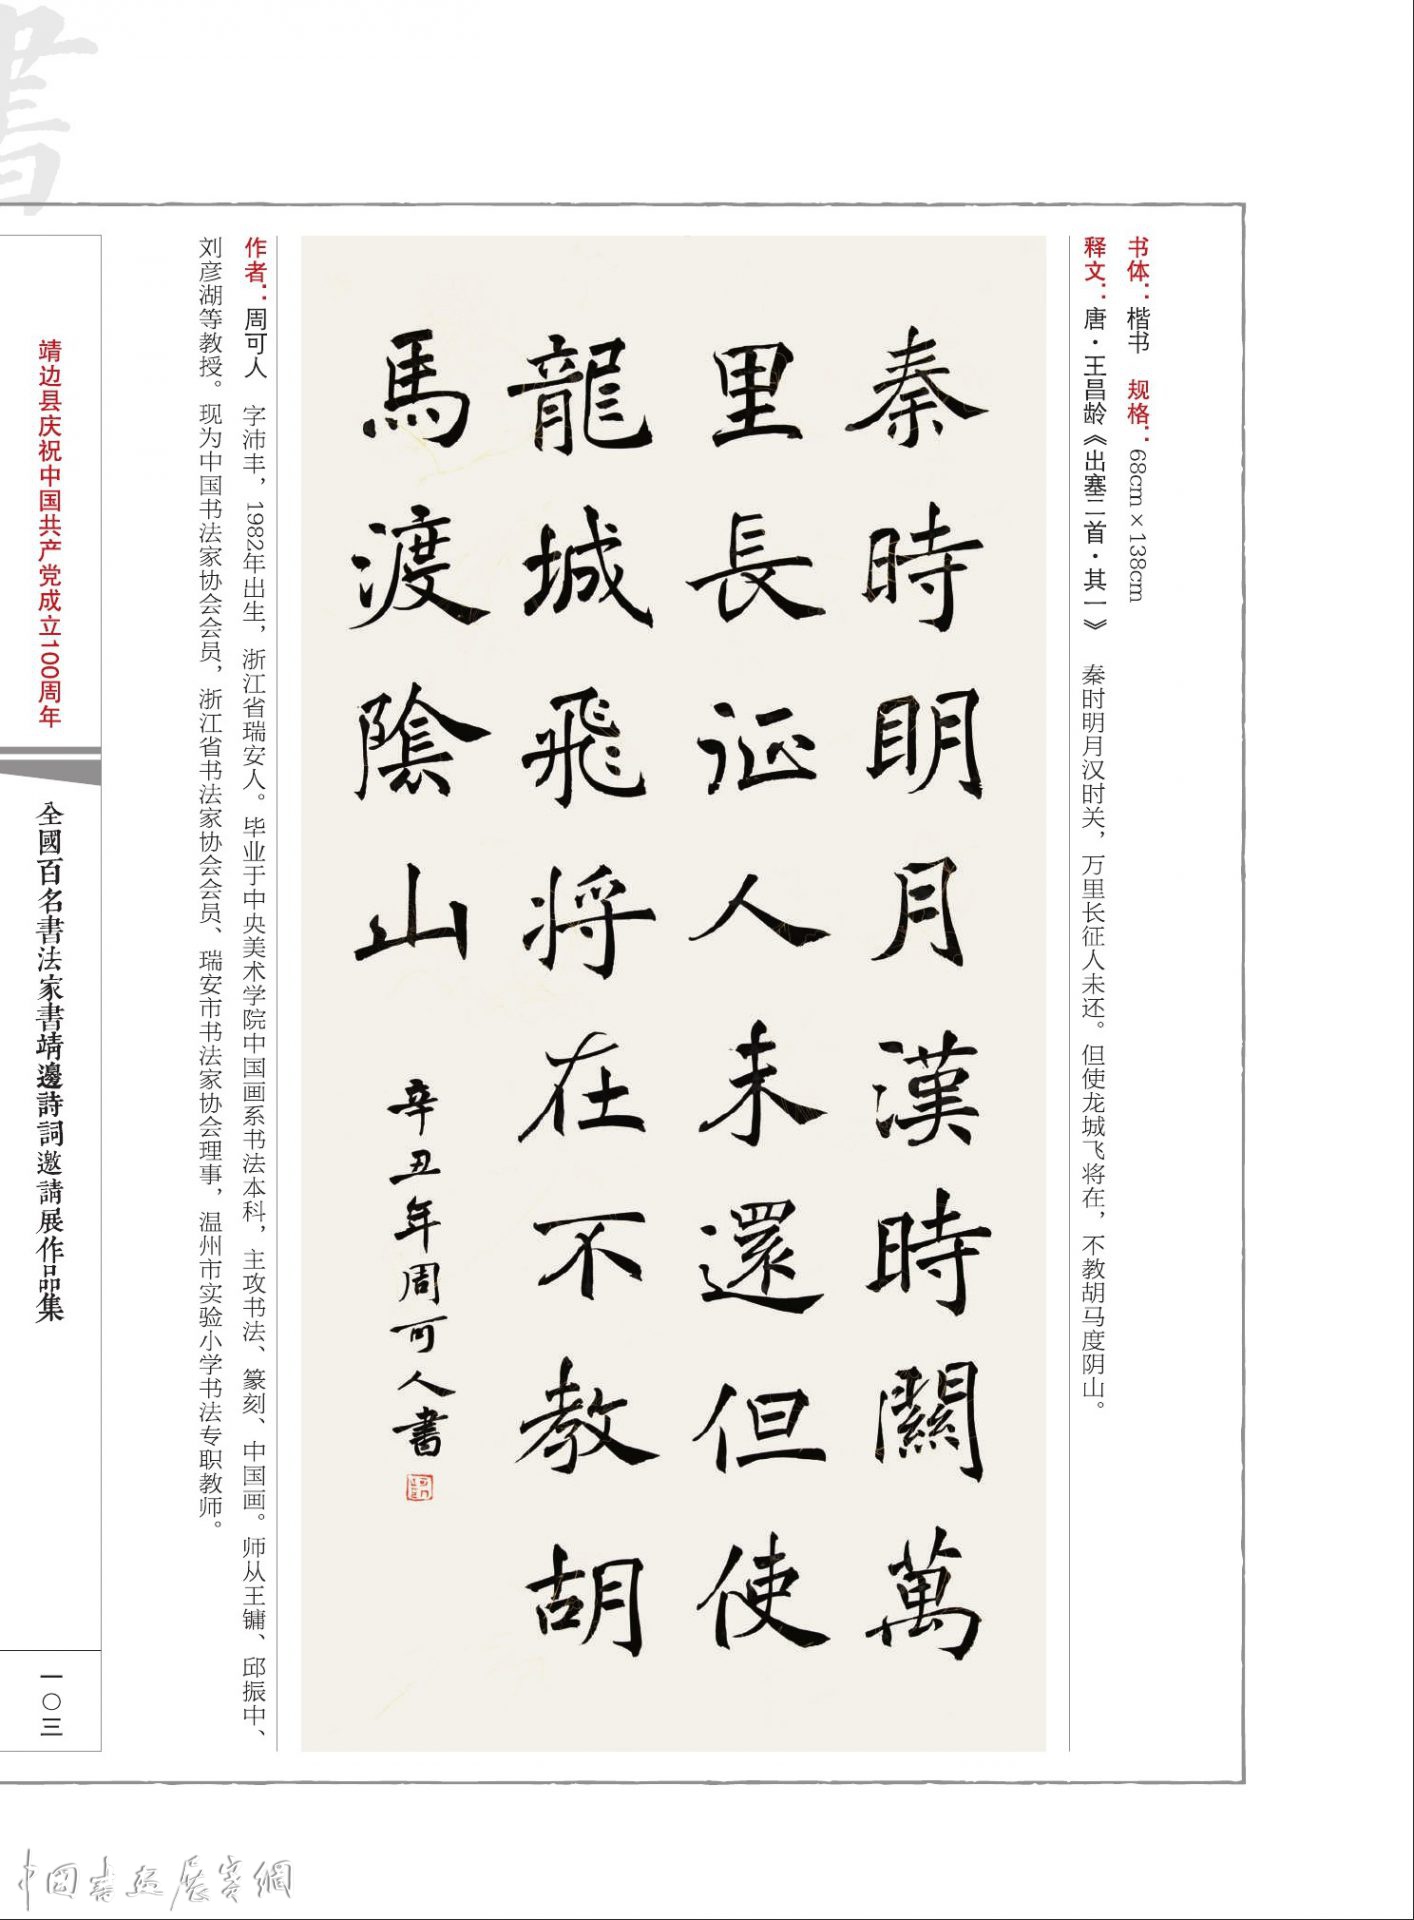 书体：楷书 规格：68cm×138cm
释文：唐·王昌龄《出塞二首·其一》 秦时明月汉时关，万里长征人未还。但使龙城飞将在，不教胡马度阴山。
秦時明月漢時關萬
里長征人未還但使
龍城飛將在不教胡
馬渡陰山
辛丑年周可人書
作者：周可人 字沛丰，1982年出生，浙江省瑞安人。毕业于中央美术学院中国画系书法本科，主攻书法、篆刻、中国画。师从王镛、邱振中、
刘彦湖等教授。现为中国书法家协会会员，浙江省书法家协会会员、瑞安市书法家协会理事，温州市实验小学书法专职教师。
靖边县庆祝中国共产党成立100周年
全國百名書法家書靖邊詩詞邀請展作品集
一〇三
書
中國書畫展賽網